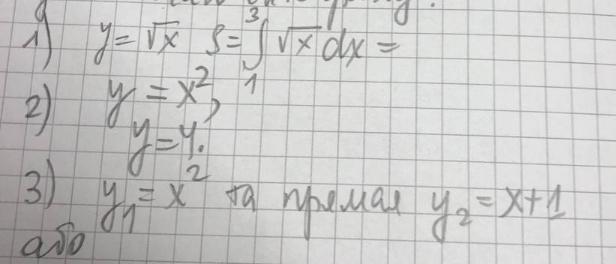 1) y = √x S = ∫₁³ √x dx =
2) y = x²,
y = 4.
3) y₁ = x² та прямая y₂ = x + 1
або